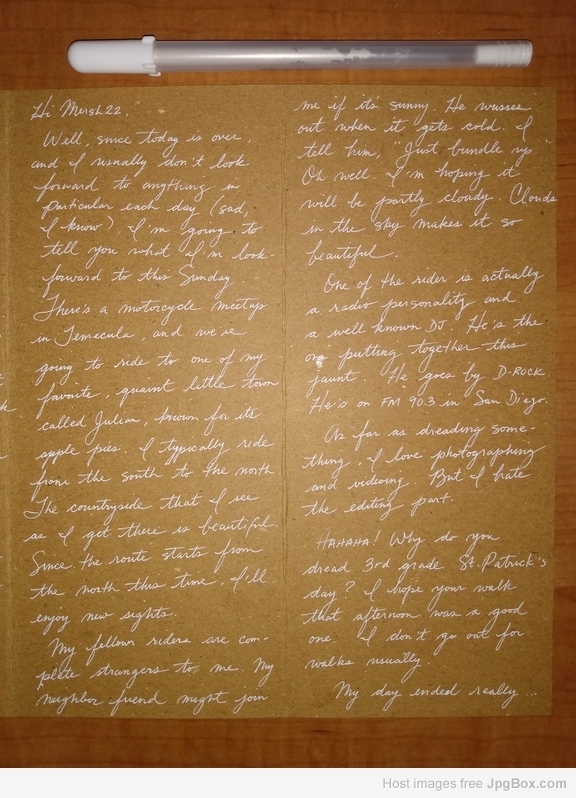 Hi Mersh22,
Well, since today is over,
and I usually don't look
forward to anything in
particular each day (sad,
I know) I'm going to
tell you what I'm look-
forward to this Sunday
There's a motorcycle meetup
in Temecula, and we're
going to ride to one of my
favorite, quaint little town
called Julian, known for its
apple pies. I typically ride
from the south to the north
The countryside that I see
as I get there is beautiful.
Since the route starts from
the north this time, I'll
enjoy new sights.
My fellow riders are com-
plete strangers to me. My
neighbor friend might join
me if it's sunny. He wusses
out when it gets cold. I
tell him, "Just bundle up."
Oh well. I'm hoping it
will be partly cloudy. Clouds
in the sky makes it so
beautiful.
One of the rider is actually
a radio personality and
a well known DJ. He's the
one putting together this
jaunt. He goes by D-ROCK
He's on FM 90.3 in San Diego.
As far as dreading some-
thing, I love photographing
and videoing. But I hate
the editing part.
HAHAHA! Why do you
dread 3rd grade St. Patrick's
day? I hope your walk
that afternoon was a good
one. I don't go out for
walks usually.
My day ended really...
Host images free JpgBox.com